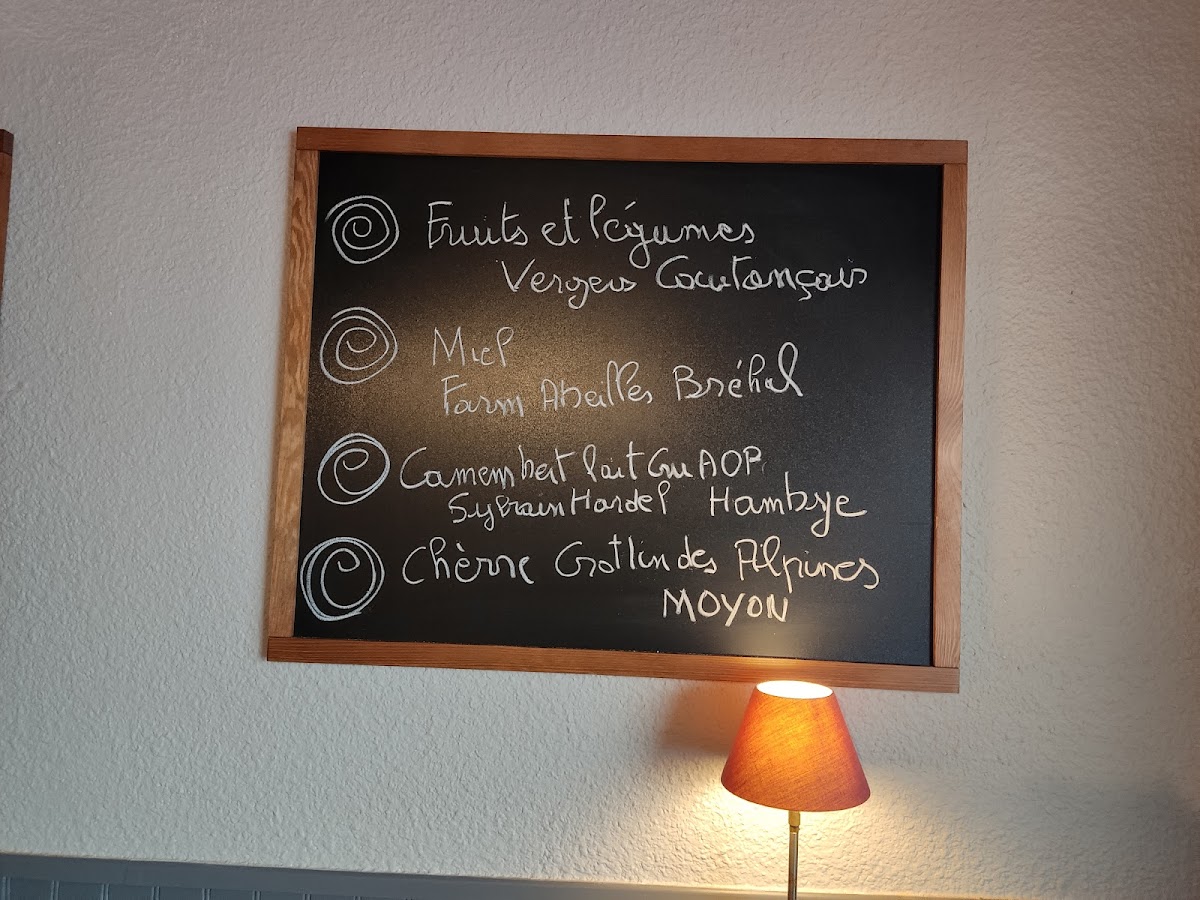 Fruits et légumes
Vergers Coutançais
Miel
Farm Abeilles Bréhal
Camembert lait Cru AOP
Sylvain Hardel Hambye
Chèvre Gotlin des Alpines
MOYON